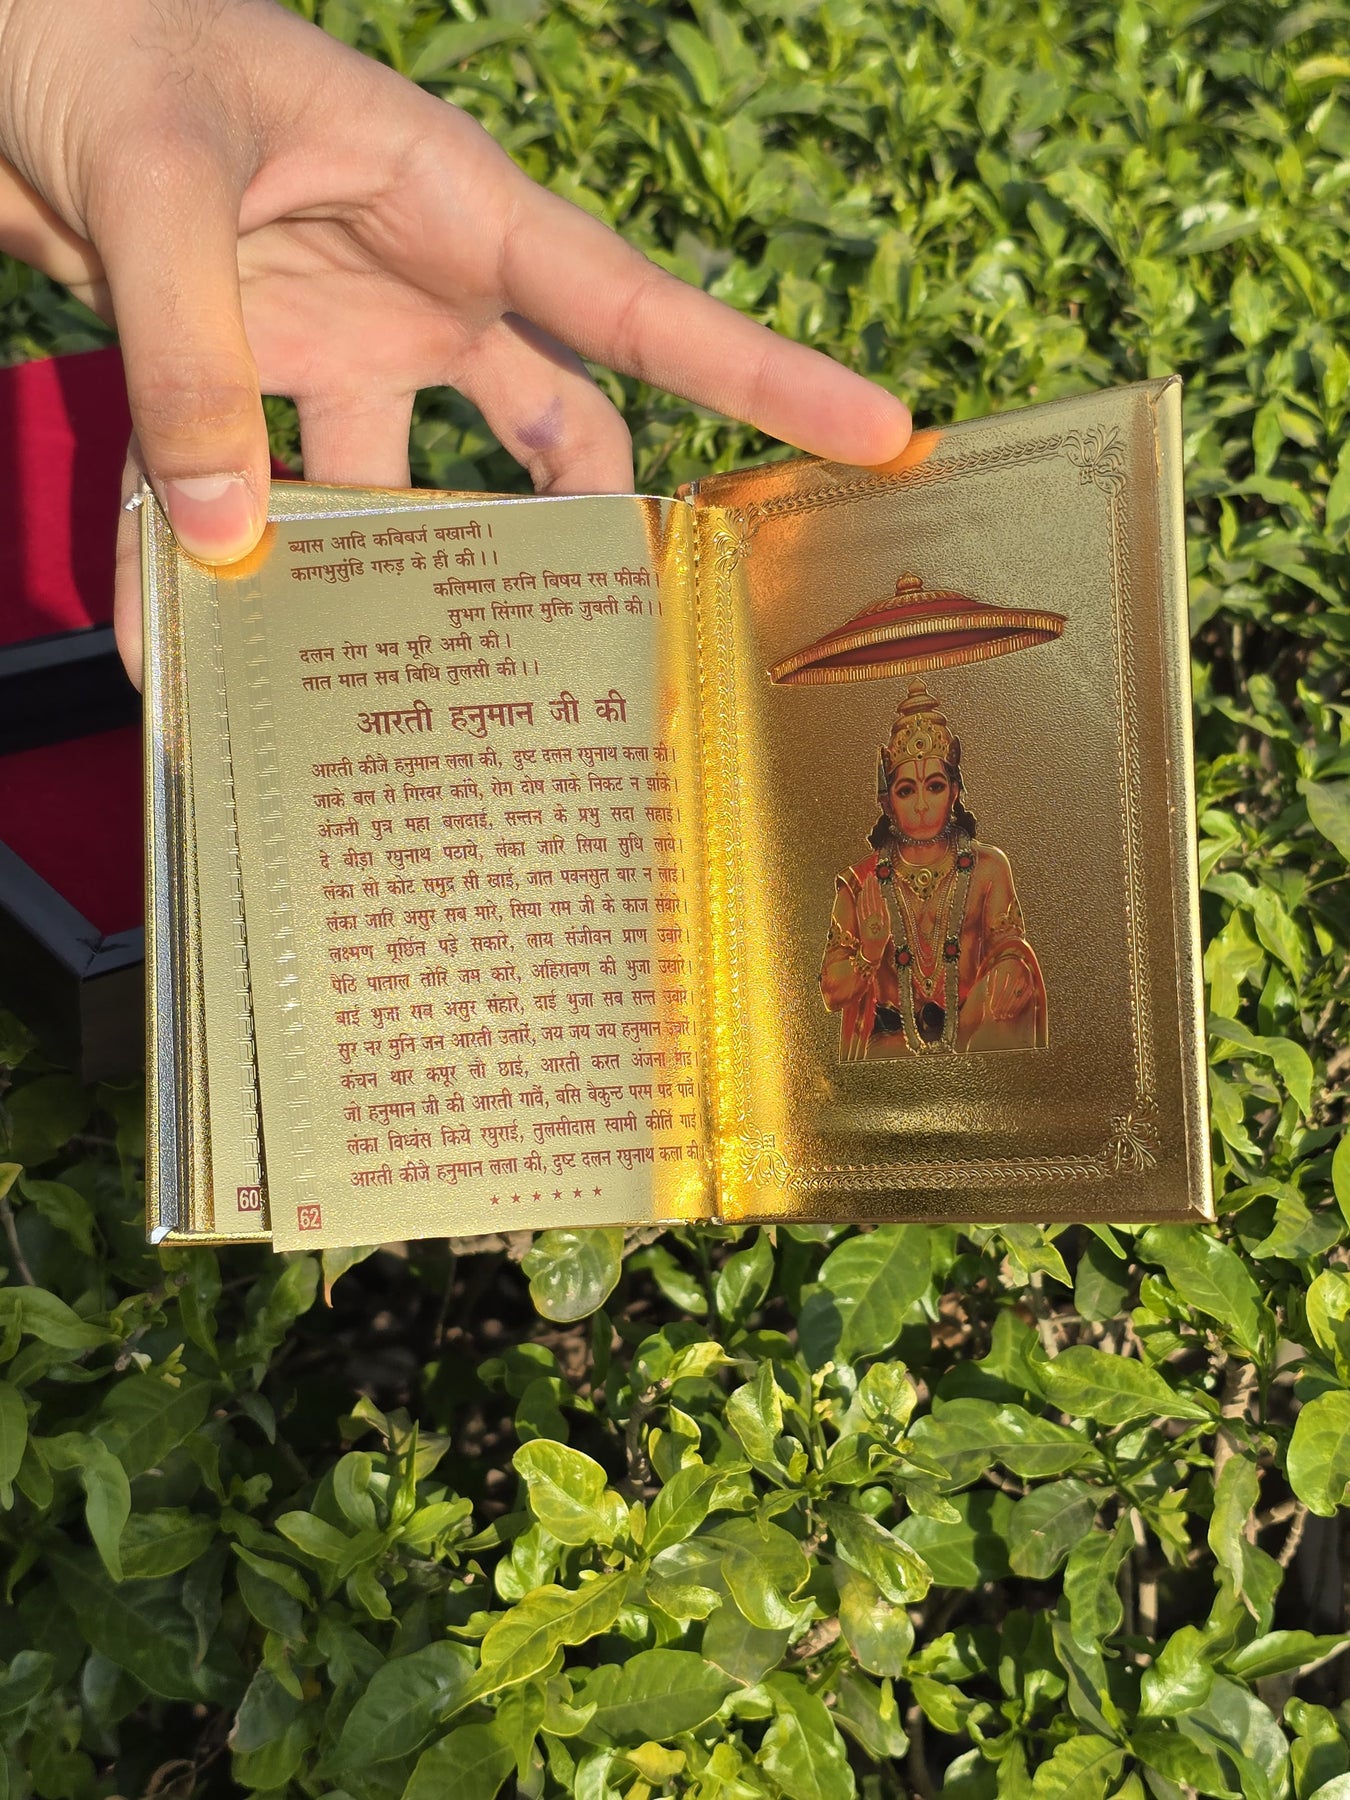 ब्यास आदि कबिबर्ज बखानी।
कागभुसुंडि गरुड़ के ही की।।
कलिमाल हरनि बिषय रस फीकी।
सुभग सिंगार मुक्ति जुबती की।।
दलन रोग भव मूरि अमी की।
तात मात सब बिधि तुलसी की।।
आरती हनुमान जी की
आरती कीजै हनुमान लला की, दुष्ट दलन रघुनाथ कला की।
जाके बल से गिरवर कांपे, रोग दोष जाके निकट न झांके।
अंजनी पुत्र महा बलदाई, सन्तन के प्रभु सदा सहाई।
दे वीड़ा रघुनाथ पठाये, लंका जारि सिया सुधि लाये।
लंका सो कोट समुद्र सी खाई, जात पवनसुत बार न लाई।
लंका जारि असुर सब मारे, सिया राम जी के काज संवारे।
लक्ष्मण मूर्छित पड़े सकारे, लाय संजीवन प्राण उबारे।
पैठि पाताल तोरि जम कारे, अहिरावण की भुजा उखारे।
बाई भुजा सब असुर संहारे, दाई भुजा सब सन्त उबारे।
सुर नर मुनि जन आरती उतारें, जय जय जय हनुमान उचारें।
कंचन थार कपूर लौ छाई, आरती करत अंजना माई।
जो हनुमान जी की आरती गावैं, बसि बैकुन्ठ परम पद पावैं
लंका विध्वंस किये रघुराई, तुलसीदास स्वामी कीर्ति गाई
आरती कीजे हनुमान लला की, दुष्ट दलन रघुनाथ कला की।
60
62